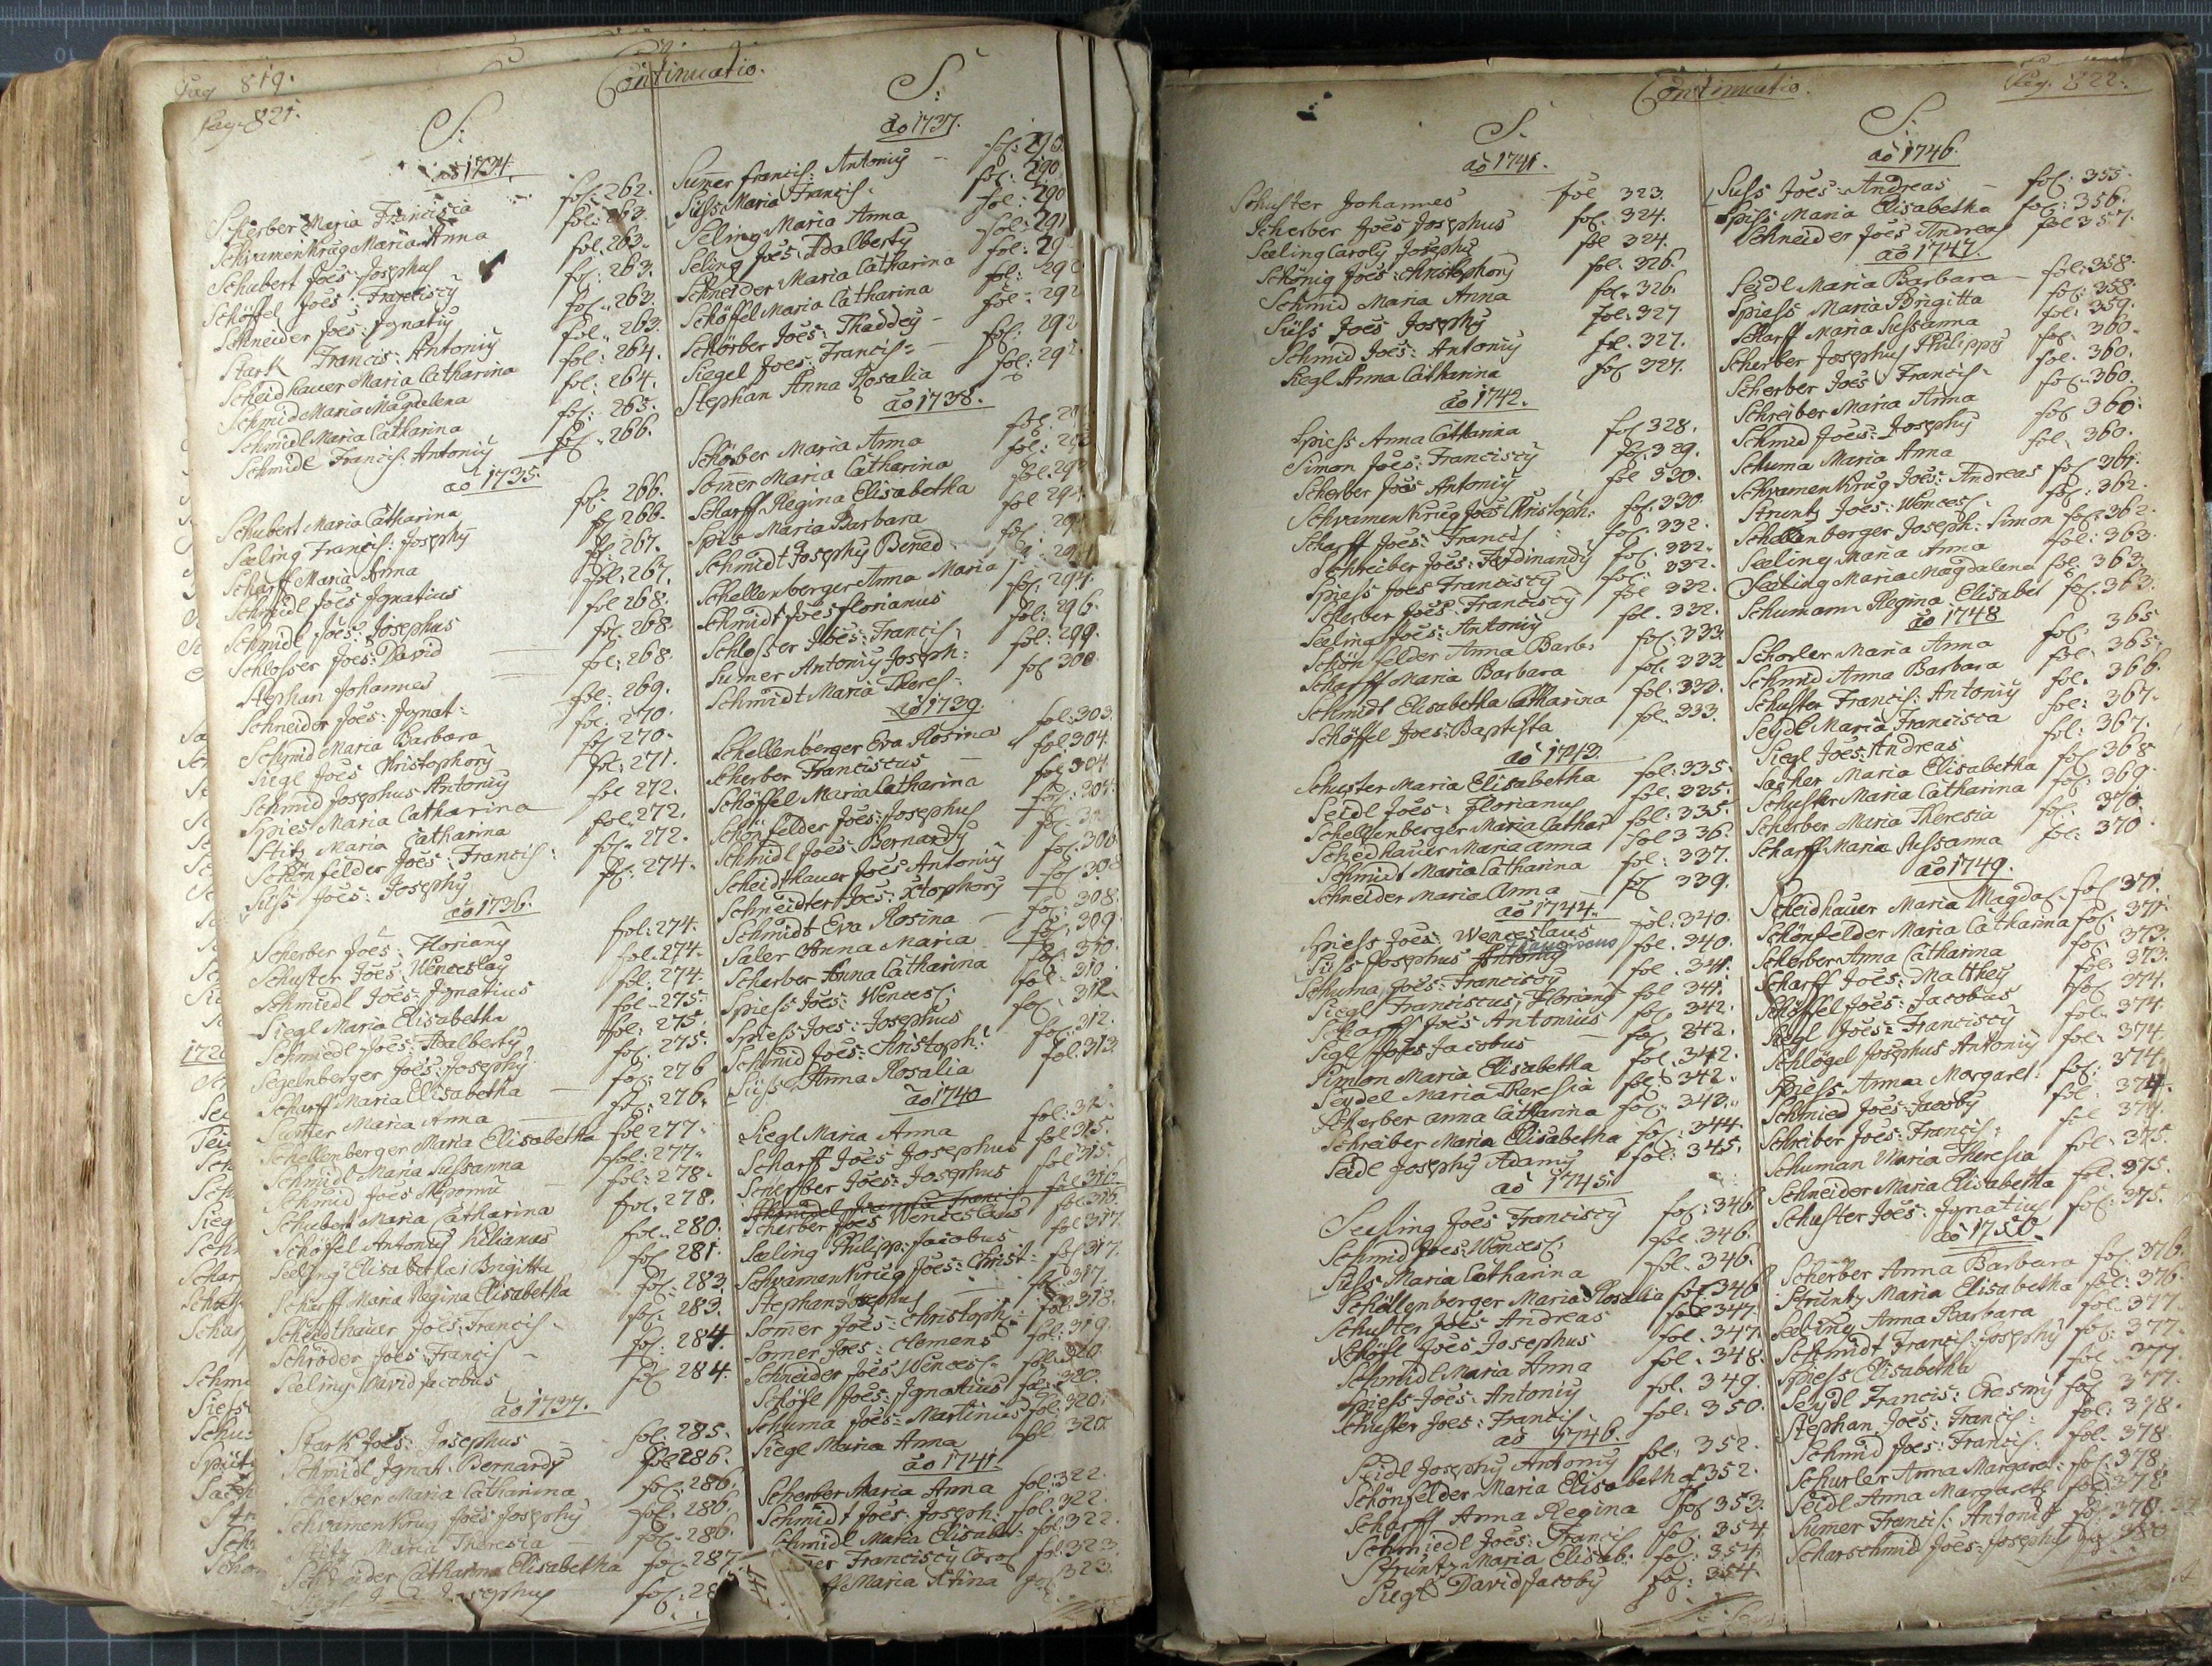 Pag 819.
Pag. 821.
Continuatio.
S:
ao 1734.
Scherber Maria Francisca fol: 262.
Schwamenkrug Maria Anna fol: 263.
Schubert Joes: Josephus fol: 263.
Schöffel Joes: Franciscy fol: 263.
Schneider Joes: Ignaty fol: 263.
Stark Francis: Antoniy fol: 263.
Scheidhauer Maria Catharina fol: 264.
Schmid Maria Magdalena fol: 264.
Schmidl Maria Catharina fol: 265.
Schmidl Francis: Antoniy fol: 266.
ao 1735.
Schubert Maria Catharina fol: 266.
Seeling Francis: Josephy fol: 266.
Scharff Maria Anna fol: 267.
Schmidl Joes Ignatius fol: 267.
Schmidl Joes: Josephus fol 268.
Schlosser Joes: David fol: 268.
Stephan Johannes fol: 268.
Schneider Joes: Ignat: fol: 269.
Schmid Maria Barbara fol: 270.
Siegl Joes Christophory fol: 270.
Schmid Josephus Antoniy fol: 271.
Spies Maria Catharina fol 272.
Stitz Maria Catharina fol: 272.
Schönfelder Joes: Francis: fol: 272.
Süss Joes: Josephy fol: 274.
ao 1736.
Scherber Joes: Floriany fol: 274.
Schuster Joes: Wenceslaÿ fol. 274.
Schmiedl Joes: Ignatius fol: 274.
Siegl Maria Elisabetha fol 275.
Schmiedl Joes: Adalberty fol: 275.
Segelnberger Joes: Josephy fol: 275.
Scharff Maria Elisabetha fol: 276
Sumer Maria Anna fol: 276.
Schellenberger Maria Elisabetha fol 277.
Schmidl Maria Sussanna fol: 277.
Schmid Joes Nepomu fol: 278.
Schubert Maria Catharina fol: 278.
Schöffel Antoniy Kilianus fol: 280.
Seeling Elisabetha Brigitta fol 281.
Scharff Maria Regina Elisabetha fol: 283.
Scheidthauer Joes: Francis: fol: 283.
Schröder Joes: Francis fol: 284.
Seeling David Jacobus fol 284.
ao 1737.
Stark Joes: Josephus fol: 285.
Schmidl Ignat: Bernardy fol 286.
Scherber Maria Catharina fol: 286.
Schwamenkrug Joes Josephy fol: 286.
Stitz Maria Theresia fol: 286.
Schneider Catharina Elisabetha fol: 287
S:
ao 1737.
Sumer Francis: Antoniy fol: 290.
Süss Maria Francis: fol: 290
Seling Maria Anna fol: 290
Seling Joes: Adalberty fol: 291
Schneider Maria Catharina fol: 29
Schöffel Maria Catharina fol: 292
Schörber Joes: Thaddey fol: 292
Siegel Joes: Francis: fol: 292
Stephan Anna Rosalia fol: 292
ao 1738.
Schörber Maria Anna fol:
Somer Maria Catharina fol:
Scharff Regina Elisabetha fol. 29
Spis Maria Barbara fol 294.
Schmidt Josephy Bened fol: 29
Schellenberger Anna Maria
Schmidt Joes Florianus fol: 294.
Schlosser Joes: Francis: fol: 296.
Sumer Antoniy Joseph: fol: 299.
Schmidt Maria Theres: fol 300.
ao 1739.
Schellenberger Eva Rosina fol: 303.
Scherber Franciscus fol 304.
Schöffel Maria Catharina fol 304.
Schönfelder Joes: Josephus fol: 304.
Schmidl Joes Bernardy fol:
Scheidthauer Joes Antoniy fol. 308
Schneidter Joes: Xtophory fol 308
Schmidt Eva Rosina fol: 308.
Saler Anna Maria fol: 309.
Scherber Anna Catharina fol: 310.
Spiess Joes: Wences: fol: 310
Spiess Joes: Josephus fol: 312.
Schmid Joes: Christoph: fol: 312.
Süss Anna Rosalia fol. 313.
ao 1740
Siegl Maria Anna fol: 31
Scharff Joes Josephus fol 315.
Scherber Joes: Josephus fol 315.
Scherber Joes Wenceslaus fol 316.
Seeling Philipp: Jacobus fol 317.
Schwamenkrug Joes: Christ: fol 317.
Stephan Josephus fol. 317.
Somer Joes: Christoph: fol. 318.
Somer Joes: Clemens fol: 319.
Schneider Joes Wences: fol. 320.
Schöfl Joes: Ignatius fol: 320.
Schuma Joes: Martinius fol: 320.
Siegl Maria Anna fol. 320
ao 1741.
Scherber Maria Anna fol: 322.
Schmidt Joes: Joseph: fol: 322.
Schmidl Maria Elisabet: fol: 322.
Franciscy Carol fol: 323.
Maria Xtina fol 323.
Pag. 822.
Continuatio.
S.
ao 1741.
Schuster Johannes fol 323.
Scherber Joes Josephus fol: 324.
Seeling Caroly Josephy fol 324.
Schönig Joes: Christophory fol: 326.
Schmid Maria Anna fol. 326.
Süss Joes Josephy fol: 327
Schmid Joes: Antoniy fol. 327.
Siegl Anna Catharina fol 327.
ao 1742.
Spiess Anna Catharina fol 328.
Simon Joes: Franciscy fol. 329.
Scherber Joes Antoniy fol 330.
Schwamenkrug Joes Christoph: fol. 330.
Scharff Joes: Francis: fol: 332.
Schreiber Joes: Ferdinandy fol: 332.
Spiess Joes Franciscy fol: 332.
Scherber Joes: Franciscy fol 332.
Seeling Joes: Antoniy fol. 332.
Schönfelder Anna Barb: fol: 333.
Scharff Maria Barbara fol: 333.
Schmidt Elisabetha Catharina fol: 333.
Schöffel Joes: Baptista fol. 333.
ao 1743.
Schuster Maria Elisabetha fol: 335.
Seidl Joes: Florianus fol. 335.
Schellenberger Maria Cathar fol: 335.
Schedhauer Maria anna fol 336.
Schmidt Maria Catharina fol: 337.
Schneider Maria Anna fol 339.
ao 1744.
Spiess Joes: Wenceslaus fol: 340.
Süss Josephus Antoniy fol. 340.
Schuma Joes: Franciscy fol. 341.
Siegl Franciscus Floriany fol 341.
Scharff Joes Antonius fol. 342.
Sigl Joes Jacobus fol. 342.
Simon Maria Elisabetha fol. 342.
Seydel Maria Theresia fol: 342.
Scherber anna Catharina fol: 342.
Schreiber Maria Elisabetha fol: 344.
Seidl Josephy Adamy fol: 345.
ao 1745.
Seeling Joes Franciscy fol: 346.
Schmid Joes: Wences: fol. 346.
Süss Maria Catharina fol. 346.
Schöllenberger Maria Rosalia fol 346
Schuster Joes Andreas fol 347.
Schöfl Joes Josephus fol. 347.
Schmidl Maria Anna fol. 348.
Spiess Joes: Antoniy fol. 349.
Schuster Joes: Francis: fol: 350.
ao 1746.
Seidl Josephy Antoniy fol: 352.
Schönfelder Maria Elisabetha 352.
Scharff Anna Regina fol 353.
Schmiedl Joes: Francis fol: 354.
Struntz Maria Elisab: fol: 354.
Siegl David Jacoby fol: 354.
S:
ao 1746.
Süss Joes: Andreas fol: 355.
Spiss Maria Elisabetha fol: 356.
Schneider Joes Andreas fol 357.
ao 1747.
Seidl Maria Barbara fol: 358.
Spiess Maria Brigitta fol: 358.
Scharff Maria Sussanna fol: 359.
Scherber Josephus Philippy fol 360.
Scherber Joes Francis: fol. 360.
Schreiber Maria Anna fol: 360.
Schmid Joes: Josephy fol 360.
Schuma Maria Anna fol. 360.
Schwamenkrug Joes: Andreas fol 361.
Struntz Joes: Wences: fol: 362.
Schellenberger Joseph: Simon fol: 362.
Seeling Maria Anna fol: 363.
Seeling Maria Magdalena fol: 363.
Schumann Regina Elisabet fol. 363.
ao 1748
Schorler Maria Anna fol: 365
Schmid Anna Barbara fol: 365.
Schuster Francis: Antoniy fol. 366.
Seydl Maria Francisca fol: 367.
Siegl Joes: Andreas fol: 367.
Sacher Maria Elisabetha fol 368
Schuster Maria Catharina fol: 369.
Scherber Maria Theresia fol: 370.
Scharff Maria Sussanna fol: 370.
ao 1749.
Scheidhauer Maria Magdal: fol 371.
Schönfelder Maria Catharina fol: 371.
Scherber Anna Catharina fol 373.
Scharff Joes: Matthey fol: 373.
Schöffel Joes: Jacobus fol 374.
Siegl Joes: Franciscy fol. 374.
Schlögel Josephus Antoniy fol: 374.
Spiess Anna Margaret: fol: 374.
Schmied Joes: Jacoby fol. 374.
Schreiber Joes: Francis: fol 374.
Schuman Maria Theresia fol: 375.
Schneider Maria Elisabetha fol: 375.
Schuster Joes: Ignatius fol: 375.
ao 1750.
Scherber Anna Barbara fol: 376.
Struntz Maria Elisabetha fol: 376.
Seeling Anna Barbara fol: 377.
Schmidt Francis: Josephy fol: 377.
Spiess Elisabetha fol 377.
Seydl Francis: Erasmy fol 377.
Stephan Joes: Francis: fol: 378.
Schmid Joes: Francis: fol. 378
Schurler Anna Margaret: fol. 378.
Seidl Anna Margareth fol 378
Sumer Francis: Antoniy fol 378.
Scharschmid Joes: Josephus fol 380